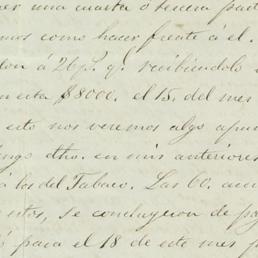 er una cuarta ó tercera part
mos como hacer frente á el.
lon á 26 p$. q. recibiéndolo
n esta $8000. el 15. del mes
esto nos veremos algo apu
engo dho. en mis anteriores
á los del Tabaco. Las 60. acc
estos, se concluyeron de pag
ó para el 18 de este mes p